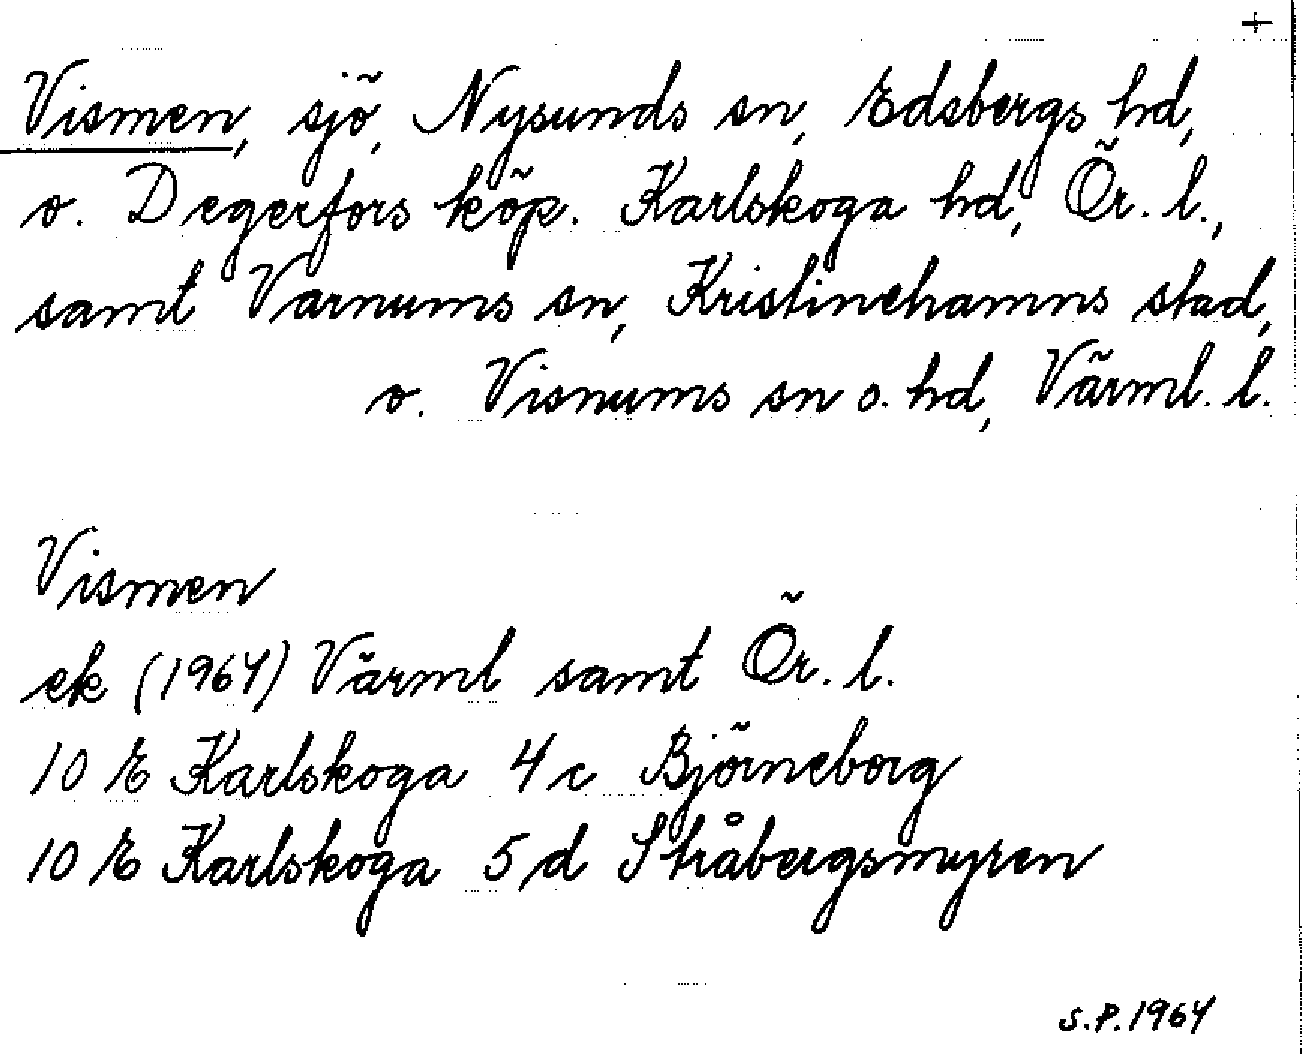 +
Vismen, sjö, Nysunds sn, Edsbergs hd,
o. Degerfors köp. Karlskoga hd, Ör. l.,
samt Varnums sn, Kristinehamns stad,
o. Visnums sn o. hd, Värml. l.
Vismen
ek (1964) Värml samt Ör. l.
10 E Karlskoga 4 c Björneborg
10 E Karlskoga 5 d Stråbergsmyren
S.P. 1964